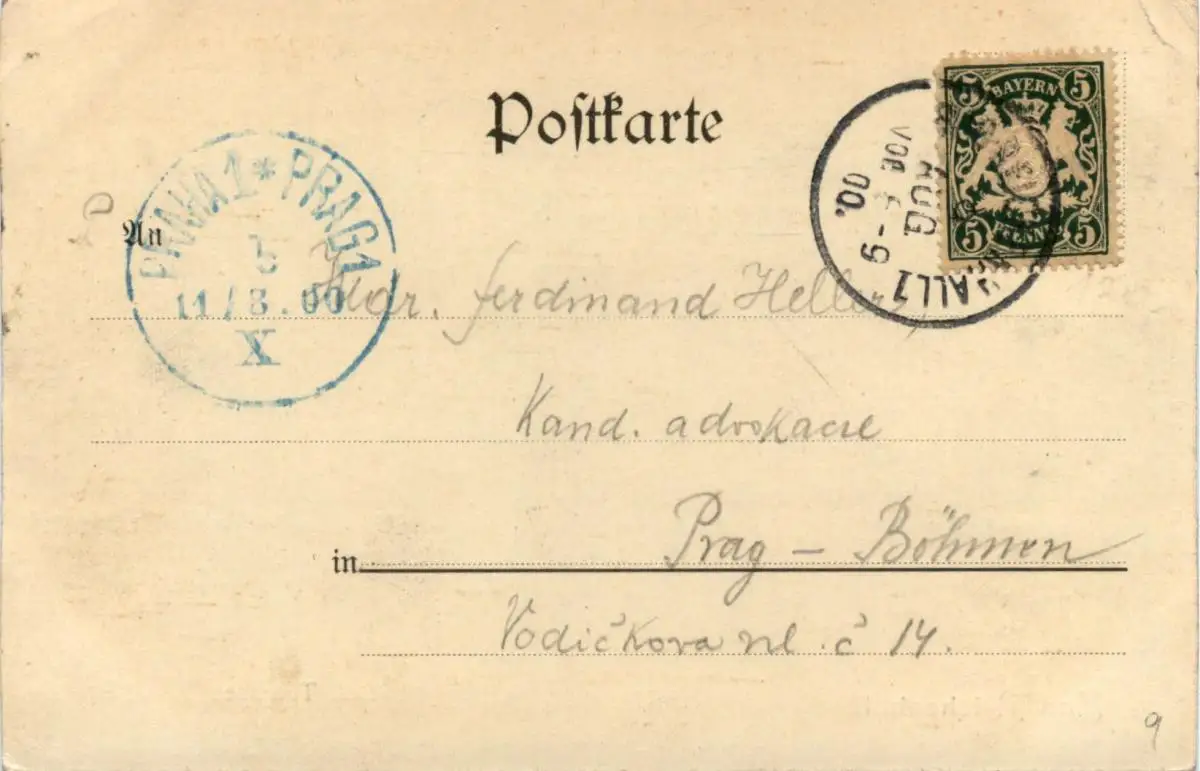 Postkarte
5 BAYERN 5
5 PFENNIG 5
AUG
VOR
9
00.
PRAHA 1 * PRAG 1
11/8.00
X
An
Ferdinand Heller
Kand. advokacie
in Prag – Böhmen
Vodičkova ul. č 14.
9